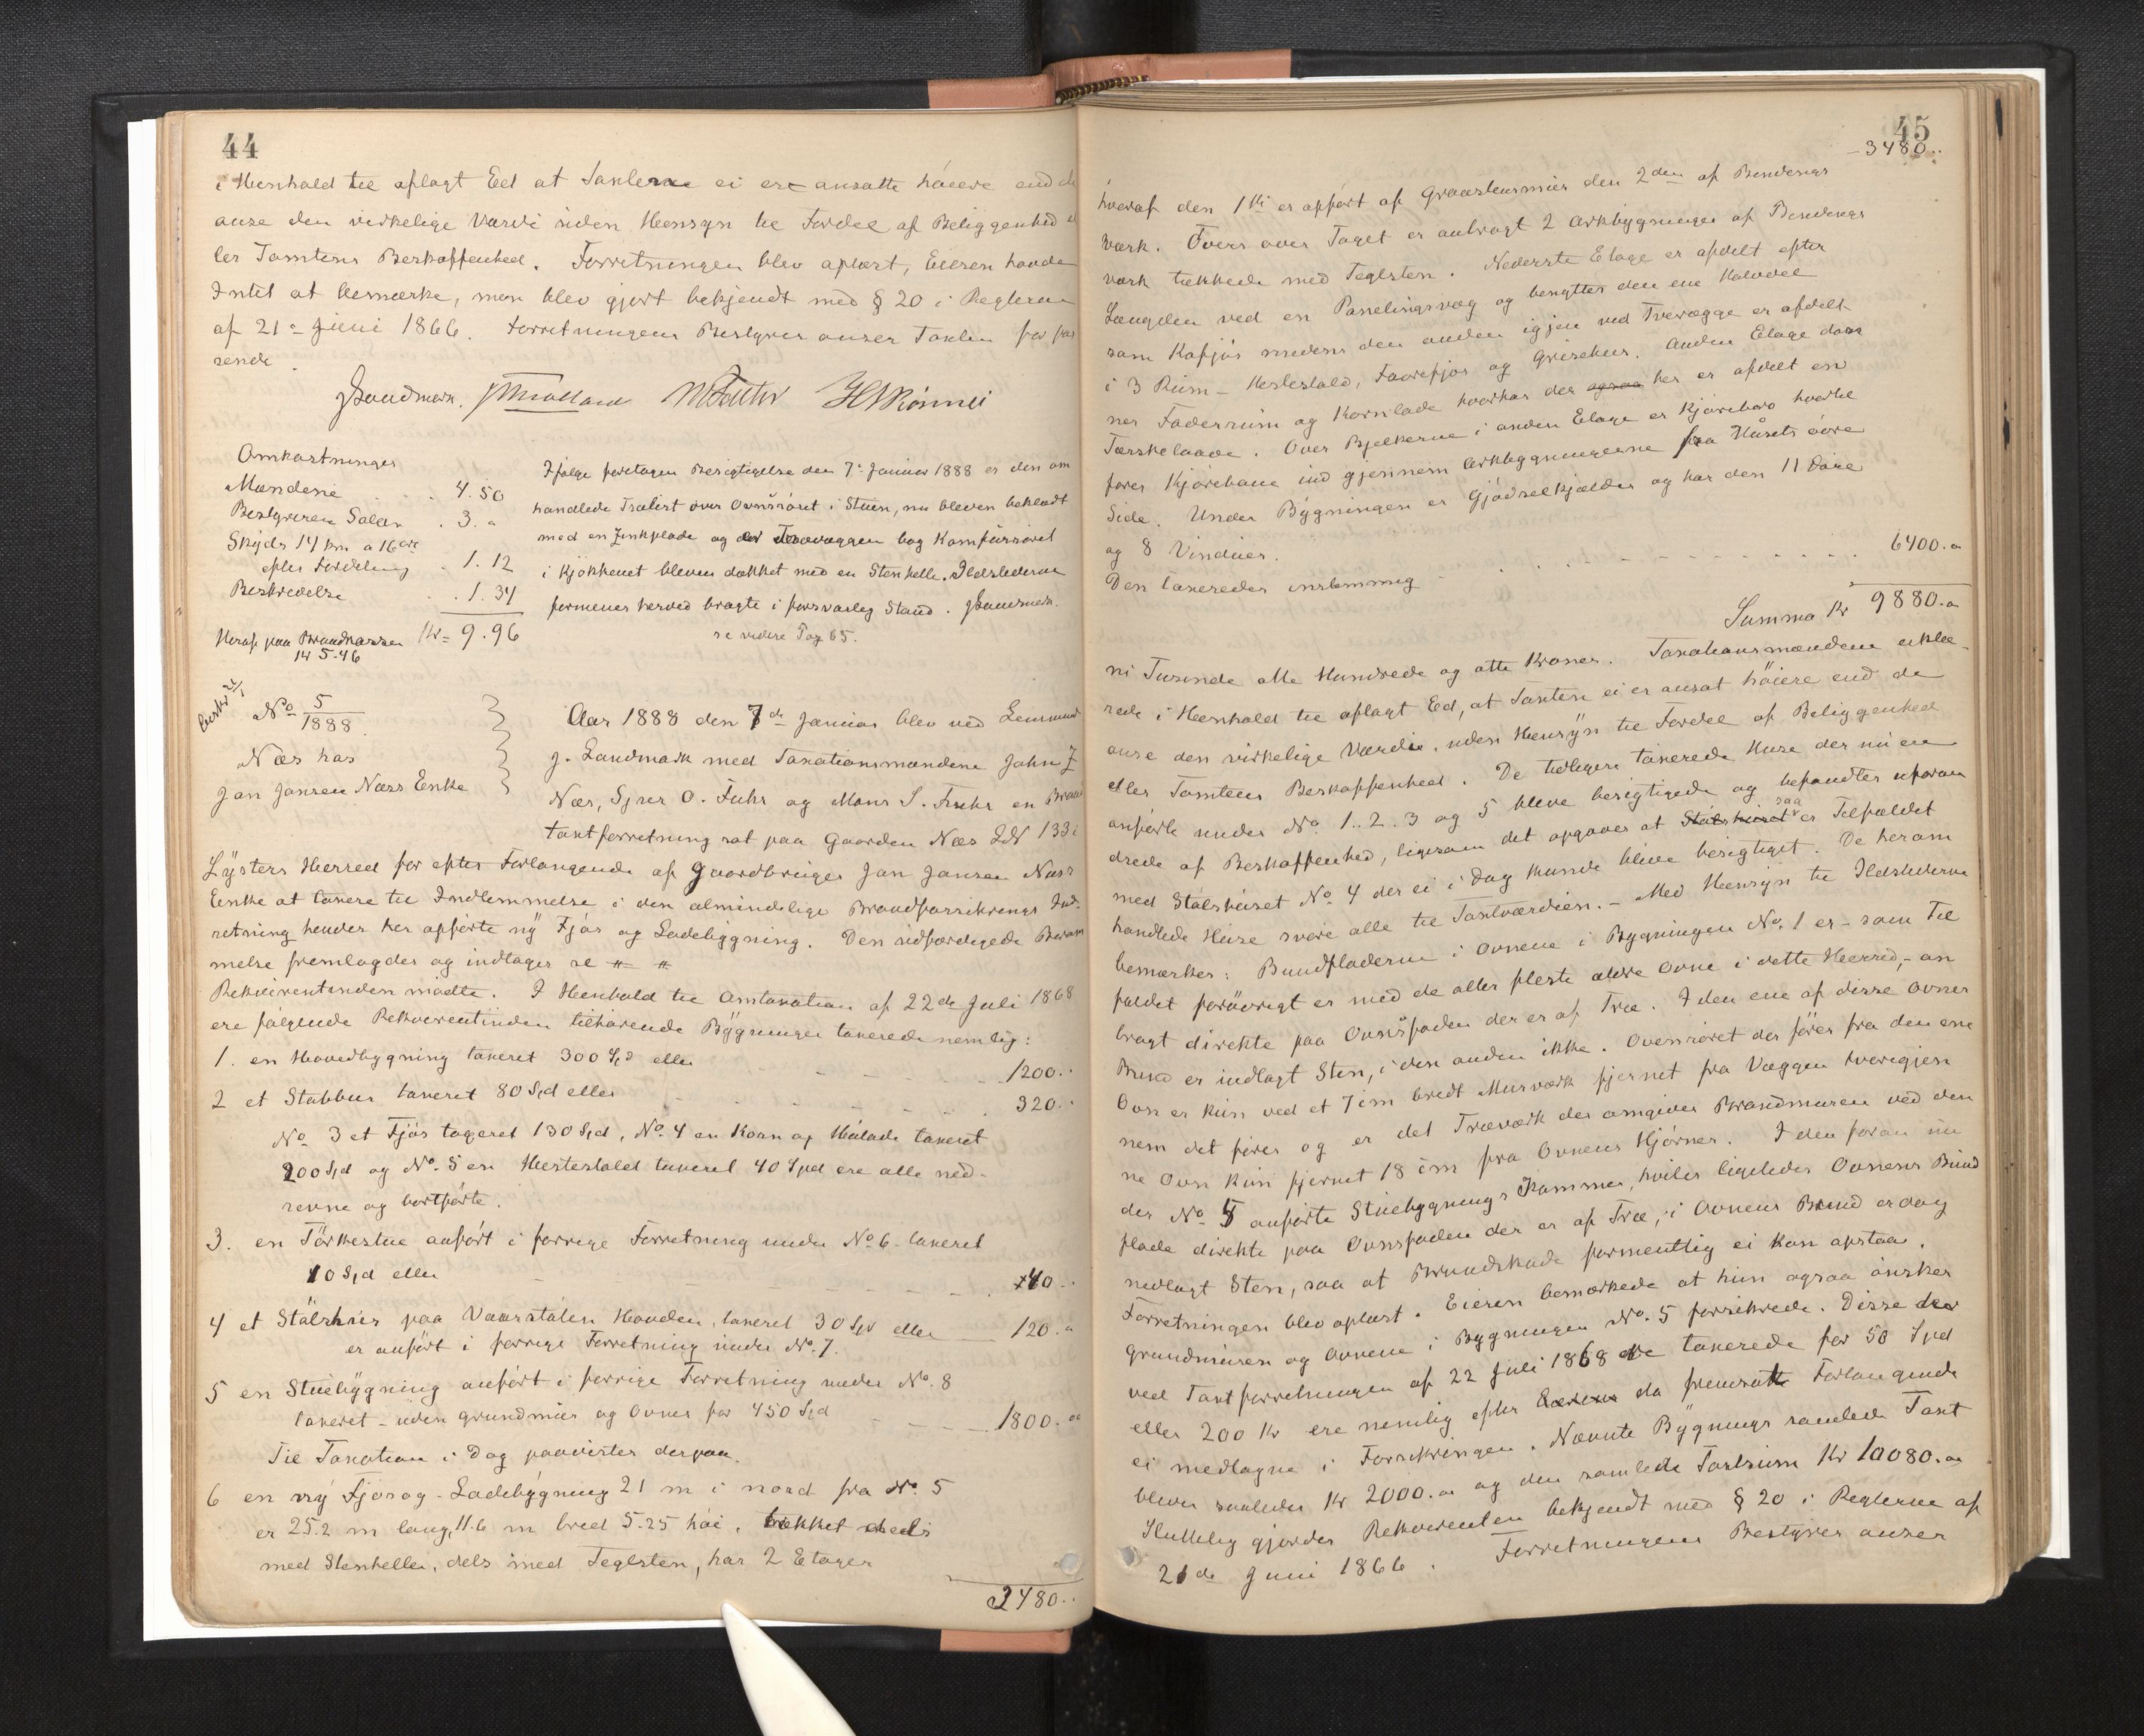 44
i Henhold til aflagt Eed at Taxterne ei ere ansatte høiere end de
anse den virkelige Værdi uden Hensyn til Fordel af Beliggenhed el
ler Tomtens Beskaffenhed. Forretningen blev oplæst, Eieren havde
Intet at bemærke, men blev gjort bekjendt med § 20 i Reglerne
af 21de Juni 1866. Forretningens Bestyrer anser Taxten for pas
sende.
JLandmark.
Omkostninger
Mændene . . 4.50
Bestyreren Salær . 3. "
Skyds 14 km a 16 øre
efter Fordeling . 1.12
Beskrivelse . 1.34
Kr= 9.96
Heraf paa Brandkassen
14 5.46
Ifølge foretagen Besigtigelse den 7de Januar 1888 er den om
handlede Trælist over Ovnsrøret i Stuen, nu bleven beklædt
med en Zinkplade og Trævæggen bag Komfurrøret
i Kjøkkenet bleven dækket med en Stenhelle. Ildstederne
formenes herved bragte i forsvarlig Stand. JLandmark.
se videre Pag 65.
No 5/1888
Næs hos
Jan Jansen Næss Enke
Aar 1888 den 7de Januar blev ved Lensmand
J. Landmark med Taxationsmændene John J
Næs, Sjur O. Fuhr og Mons S. Fuhr en Brand
taxtforretning sat paa Gaarden Næs LN 133 i
Lysters Herred for efter Forlangende af Gaardbruger Jan Jansen Næss
Enke at taxere til Indlemmelse i den almindelige Brandforsikrings Ind-
retning hendes her opførte ny Fjøs og Ladebygning. Den udfærdigede Beram
melse fremlagdes og indtages se # #
Rekvirentinden mødte. I Henhold til Omtaxation af 22de Juli 1868
ere følgende Rekvirentinden tilhørende Bygninger taxerede nemlig:
1. en Hovedbygning taxeret 300 Spd eller 1200..
2 et Stabbur taxeret 80 Spd eller 320..
No 3 et Fjøs taxeret 130 Spd, No. 4 en Korn og Hølade taxeret
200 Spd og No. 5 en Hestestald taxeret 40 Spd ere alle ned-
revne og bortførte.
3. en Tørkestue anført i forrige Forretning under No 6 taxeret
10 Spd eller 40..
4 et Stølshus paa Vaarstølen Hovden, taxeret 30 Spd eller 120."
er anført i forrige Forretning under No. 7.
5 en Stuebygning anført i forrige Forretning under No. 8
taxeret - uden Grundmur og Ovner for 450 Spd 1800."
Til Taxation i Dag paavistes derpaa.
6 en ny Fjøs og Ladebygning 21 m i nord fra No. 5
er 25.2 m lang, 11.6 m bred 5.25 høi, tækket dels
med Stenheller, dels med Teglsten, har 2 Etager
3480..
45
3480..
hvoraf den 1ste er opført af Graastensmur den 2den af Bindings
værk. Tvers over Taget er anbragt 2 Arkbygninger af Bindings
værk tækkede med Teglsten. Nederste Etage er afdelt efter
Længden ved en Panelingsvæg og benyttes den ene Halvdel
som Kofjøs medens den anden igjen ved Tvervægge er afdelt
i 3 Rum - Hestestald, Faarefjøs og Grisehus. Anden Etage dan
ner Foderrum og Kornlade hvorhos der ogsaa her er afdelt en
Tærskelaave. Over Bjelkerne i anden Etage er Kjørebro hvortil
fører Kjørebane ind gjennem Arkbygningerne fra Husets øvre
Side. Under Bygningen er Gjødselkjælder og har den 11 Døre
og 8 Vinduer.
Den taxeredes enstemmig 6400."
Summa Kr 9880."
ni Tusinde otte Hundrede og otte Kroner. Taxationsmændene erklæ-
rede i Henhold til aflagt Eed, at Taxten ei er ansat høiere end de
anse den virkelige Værdie, uden Hensyn til Fordel af Beliggenhed
eller Tomtens Beskaffenhed. De tidligere taxerede Huse der nu ere
anførte under No. 1. 2. 3 og 5 bleve besigtigede og befandtes uforan
drede af Beskaffenhed, ligesom det opgaves at Stølshuset saa er Tilfældet
med Stølshuset No 4 der ei i Dag kunde blive besigtiget. De herom
handlede Huse svare alle til Taxtværdien. - Med Hensyn til Ildstederne
bemærkes: Bundpladerne i Ovnene i Bygningen No. 1 er - som Til
fældet forøvrigt er med de aller fleste ældre Ovne i dette Herred, - an
bragt direkte paa Ovnsfoden der er af Træ. I den ene af disse Ovner
Bund er indlagt Sten, i den anden ikke. Ovnsrøret der fører fra den ene
Ovn er kun ved et 7 cm bredt Murværk fjernet fra Væggen hvorigjen
nem det føres og er det Træværk der omgiver Brandmuren ved den
ne Ovn kun fjernet 18 cm fra Ovnens Hjørner. I den foran un
der No 5 anførte Stuebygnings Kammer, hviler ligeledes Ovnens Bund
plade direkte paa Ovnsfoden der er af Træ, i Ovnens Bund er dog
nedlagt Sten, saa at Brandskade formentlig ei kan opstaa.
Forretningen blev oplæst. Eieren bemærkede at hun ogsaa ønsker
grundmuren og Ovnene i Bygningen No. 5 forsikrede. Disse
ved Taxtforretningen af 22 Juli 1868 taxerede for 50 Spd
eller 200 Kr ere nemlig efter Eierens da fremsatte Forlangende
ei medtagne i Forsikringen. Nævnte Bygnings samlede Taxt
bliver saaledes Kr 2000." og den samlede Taxtsum Kr 10080."
Sluttelig gjordes Rekvirenten bekjendt med § 20 i Reglerne af
21de Juni 1866. Forretningens Bestyrer anser